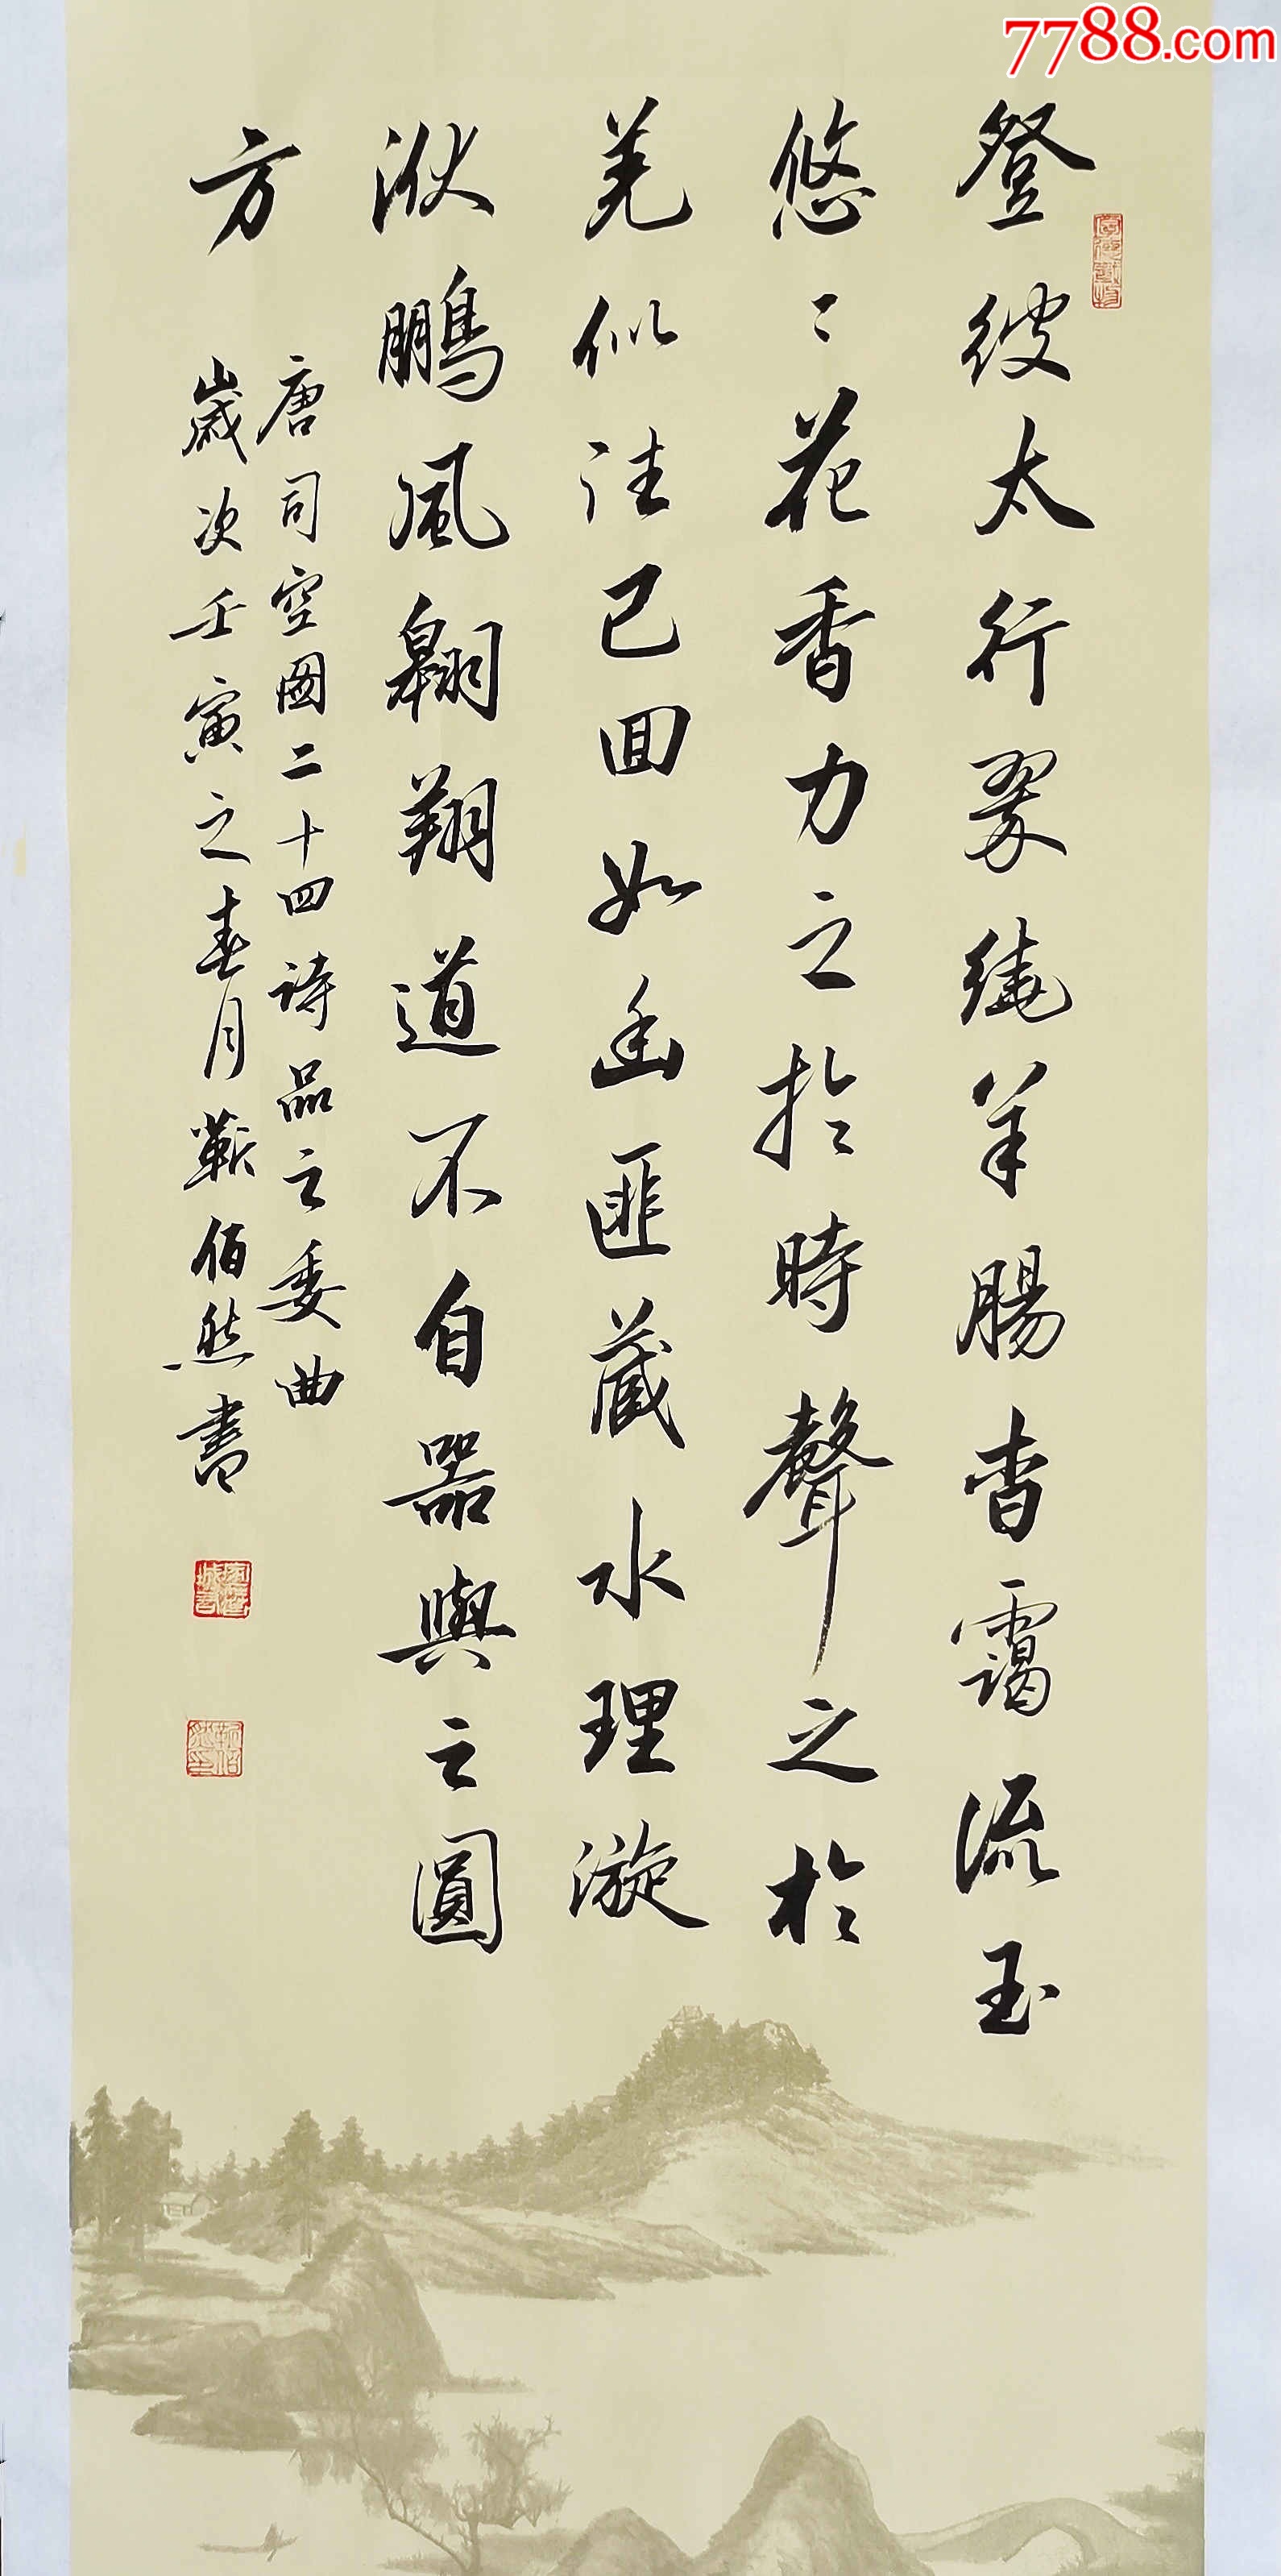 7788.com
登彼太行翠繞羊腸杳靄流玉
悠〻花香力之於時聲之於
羌似往已回如幽匪藏水理漩
洑鵬風翱翔道不自器與之圓
方
唐司空圖二十四詩品之委曲
歲次壬寅之春月靳佰然書